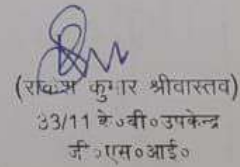 (राकेश कुमार श्रीवास्तव)
33/11 के०वी०उपकेन्द्र
जी०एस०आई०